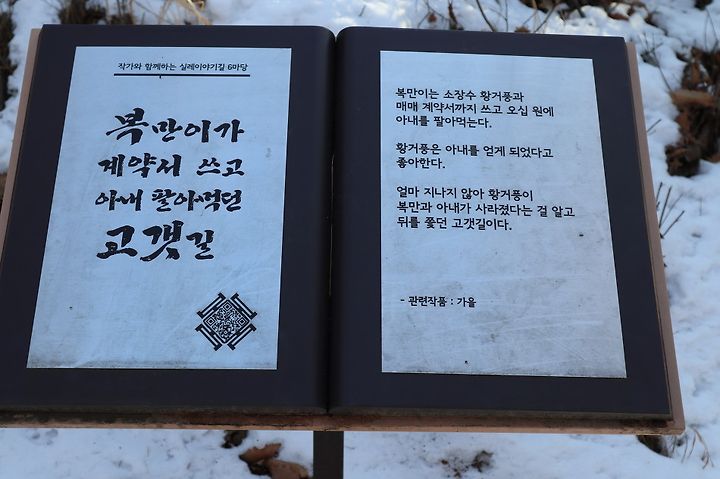 작가와 함께하는 실레이야기길 6마당
복만이가
계약서 쓰고
아내 팔아먹던
고갯길
복만이는 소장수 황거풍과
매매 계약서까지 쓰고 오십 원에
아내를 팔아먹는다.
황거풍은 아내를 얻게 되었다고
좋아한다.
얼마 지나지 않아 황거풍이
복만과 아내가 사라졌다는 걸 알고
뒤를 쫓던 고갯길이다.
- 관련작품 : 가을